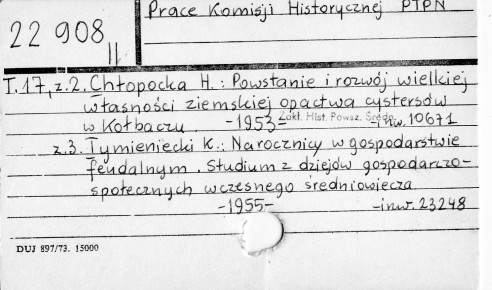 Prace Komisji Historycznej PTPN
22 908
II
T.17, z.2. Chłopocka H.: Powstanie i rozwój wielkiej
własności ziemskiej opactwa cystersów
w Kołbaczu. -1953- Zakł. Hist. Powsz. Średn. -inw. 10671
z.3. Tymieniecki K.: Narocznicy w gospodarstwie
feudalnym. Studium z dziejów gospodarczo-
społecznych wczesnego średniowiecza
-1955- -inw. 23248
DUJ 897/73. 15000